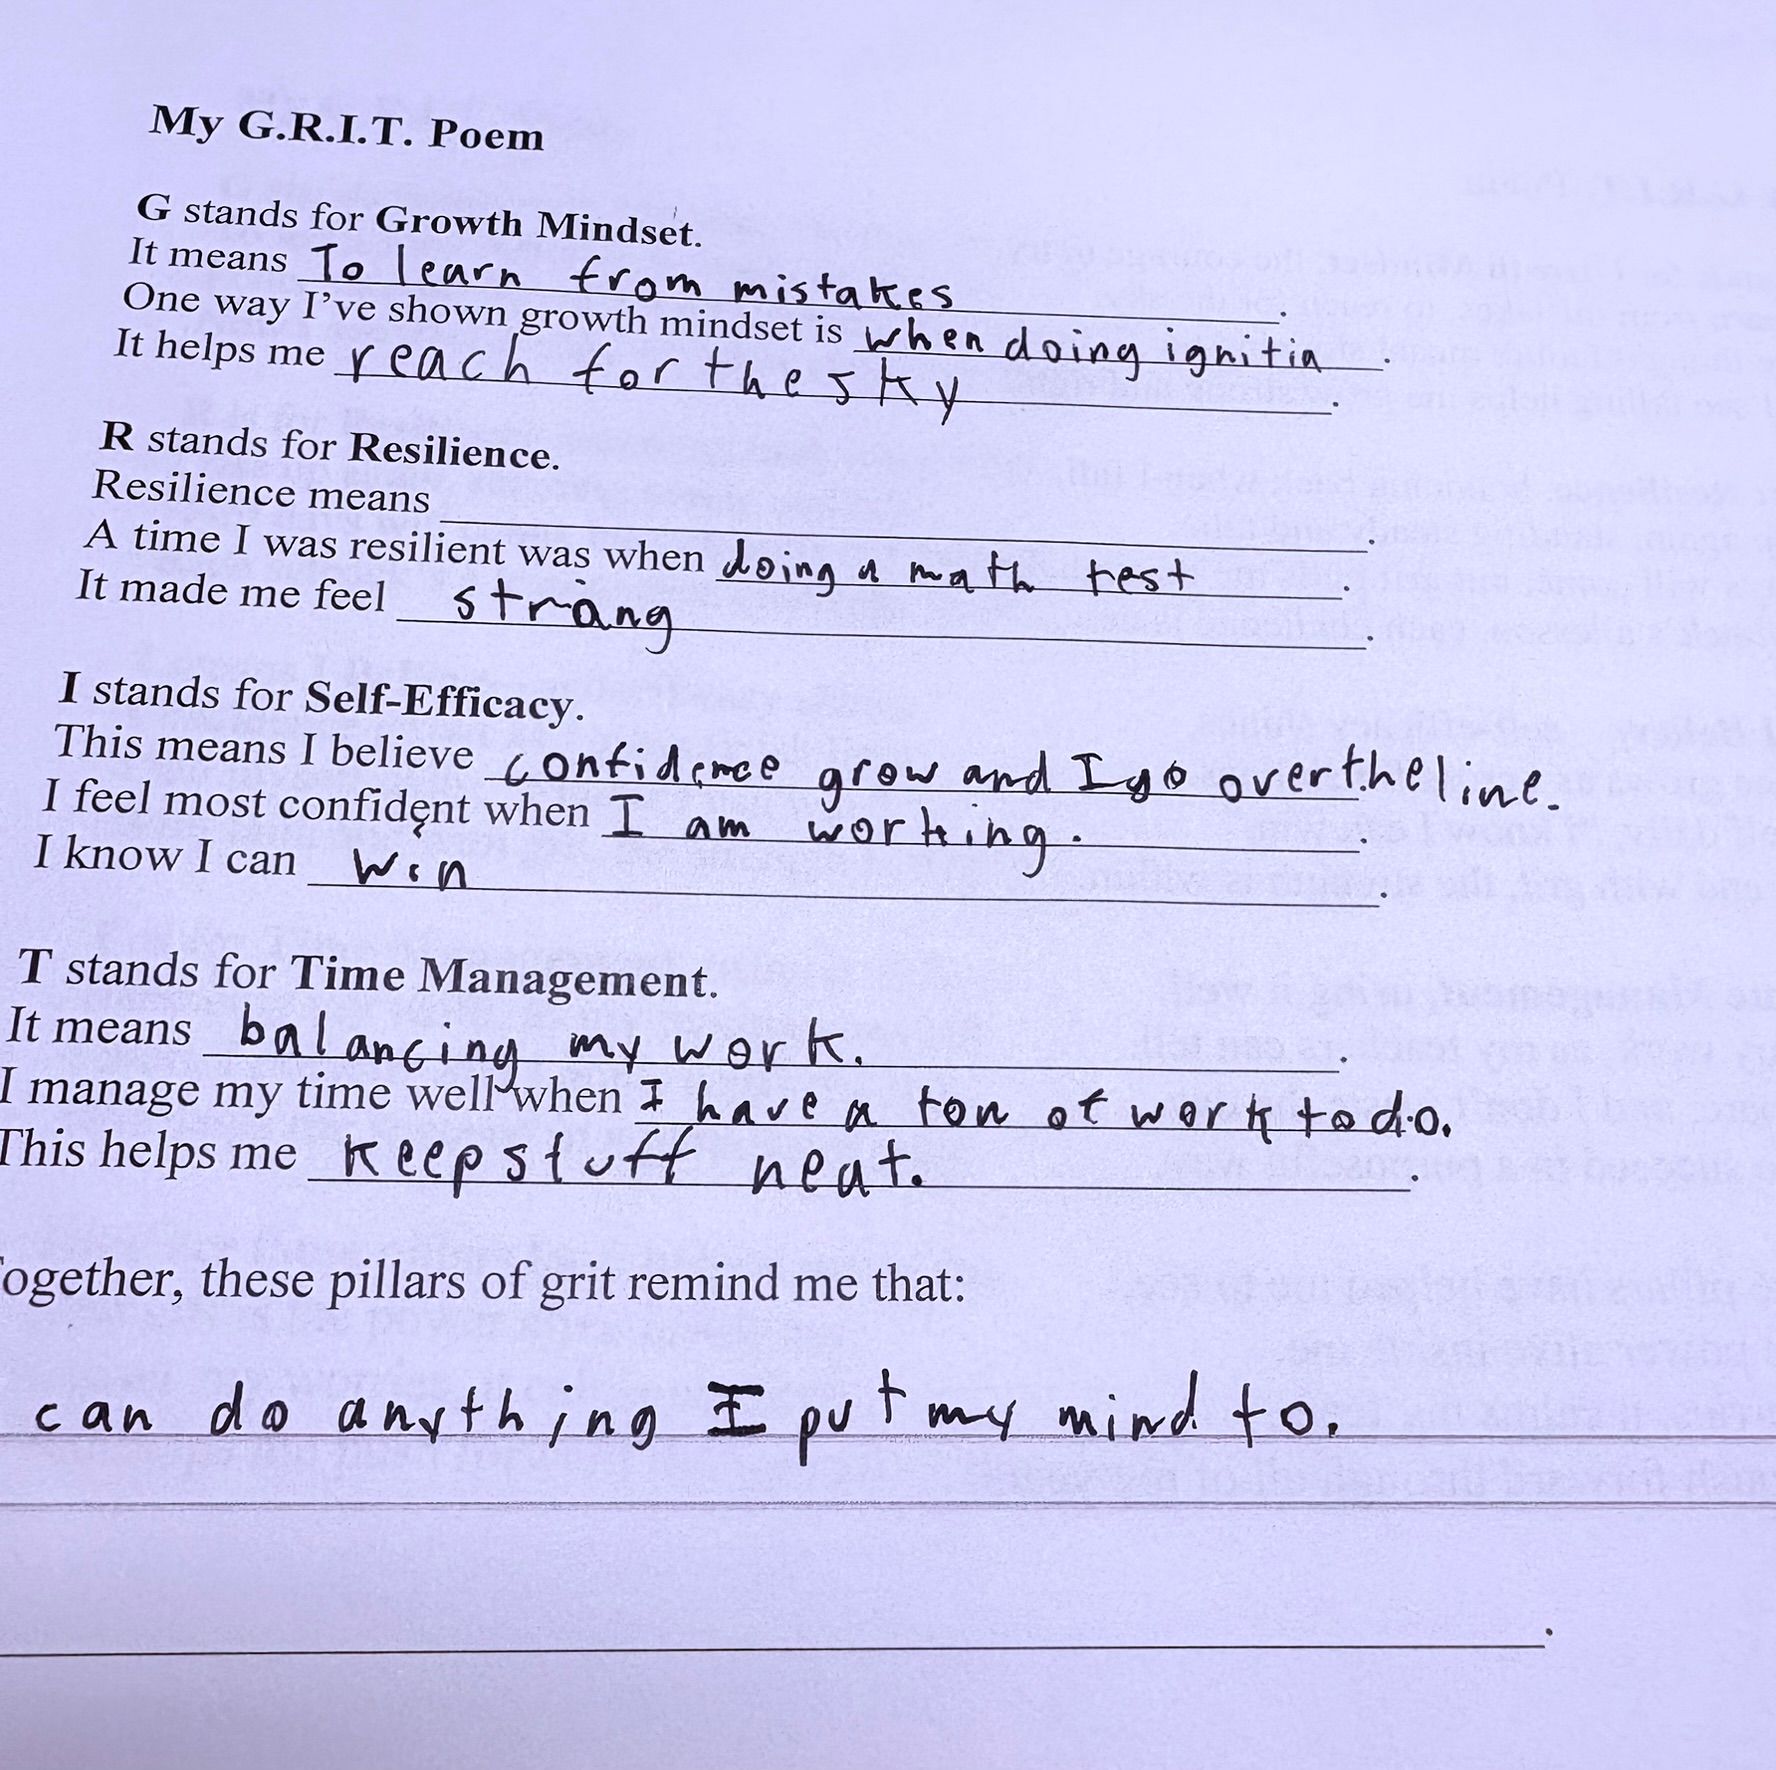 My G.R.I.T. Poem
G stands for Growth Mindset.
It means To learn from mistakes.
One way I've shown growth mindset is when doing ignitia.
It helps me reach for the sky.
R stands for Resilience.
Resilience means .
A time I was resilient was when doing a math test.
It made me feel strong.
I stands for Self-Efficacy.
This means I believe confidence grow and I go over the line.
I feel most confident when I am working. .
I know I can win.
T stands for Time Management.
It means balancing my work. .
I manage my time well when I have a ton of work to do.
This helps me keep stuff neat. .
ogether, these pillars of grit remind me that:
can do anything I put my mind to.
.